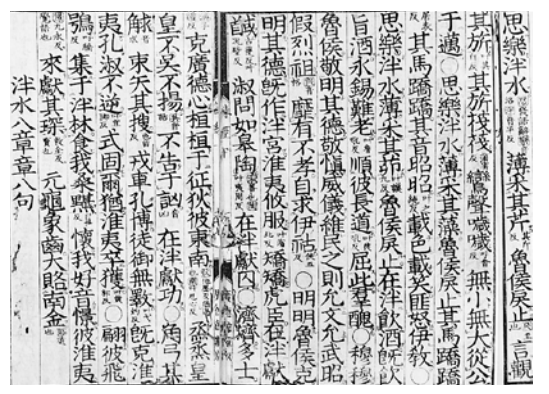 思樂泮水 薄采其芹 魯侯戾止 言觀
其旂 其旂茷茷 鸞聲噦噦 無小無大從公
于邁○思樂泮水薄采其藻魯侯戾止其馬蹻蹻
其馬蹻蹻其音昭昭 載色載笑匪怒伊教○
思樂泮水薄采其茆 魯侯戾止在泮飲酒既飲
旨酒永錫難老 順彼長道 屈此羣醜○穆穆
魯侯敬明其德敬慎威儀維民之則允文允武昭
假烈祖 靡有不孝自求伊祜○明明魯侯克
明其德既作泮宮淮夷攸服 矯矯虎臣在泮獻
馘 淑問如皐陶 在泮獻囚○濟濟多士
克廣德心桓桓于征狄彼東南 烝烝皇
皇不吳不揚 不告于訩 在泮獻功○角弓其
觩 束矢其搜 戎車孔博徒御無斁 既克淮
夷孔淑不逆 式固爾猶淮夷卒獲○翩彼飛
鴞 集于泮林食我桑黮 懷我好音憬彼淮夷
來獻其琛 元龜象齒大賂南金
泮水八章章八句